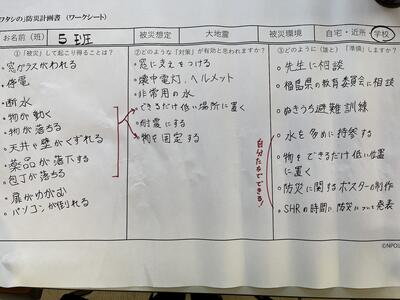 ワタシの」防災計画書（ワークシート）
お名前（班） 5班 被災想定 大地震 被災環境 自宅・近所・学校
①「被災」して起こり得ることは？
・窓ガラスがわれる
・停電
・断水
・物が動く
・物が落ちる
・天井や壁がくずれる
・薬品が落下する
・包丁が落ちる
・扉がゆがむ
・パソコンが倒れる
②どのような「対策」が有効と思われますか？
・窓に支えをつける
・懐中電灯、ヘルメット
・非常用の水
・できるだけ低い場所に置く
・耐震にする
・物を固定する
③どのように（誰と）「準備」しますか？
・先生に相談
・福島県の教育委員会に相談
・ぬきうち避難訓練
自分たちでできる!
・水を多めに持参する
・物をできるだけ低い位置
に置く
・防災に関するポスターの制作
・SHRの時間に防災について発表